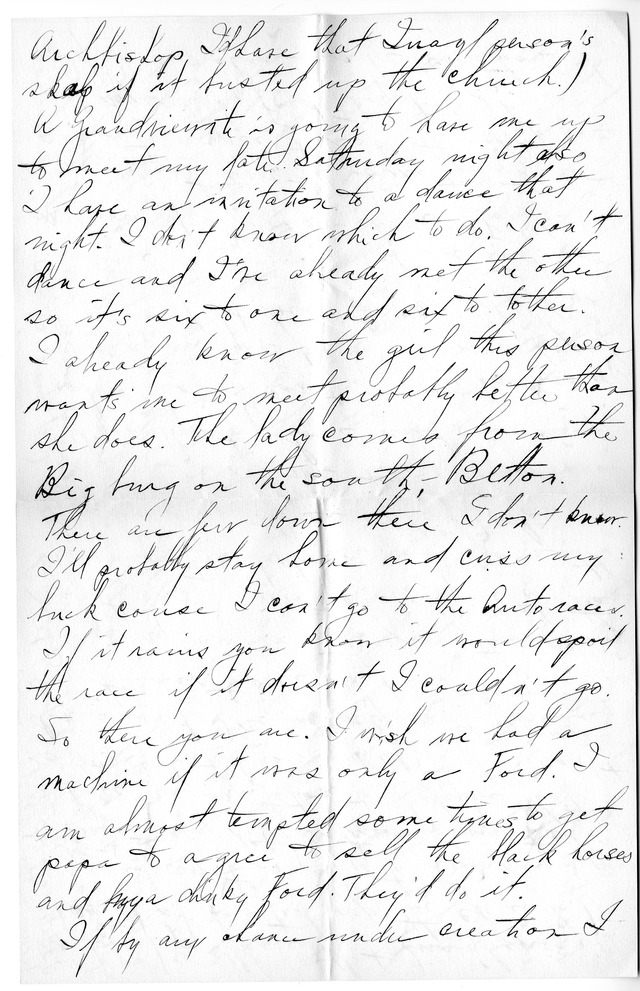 Archbishop I'd have that
person's
if it busted up the church.)
A Grandviewite is going to have me up
to meet my fate Saturday night also
I have an invitation to a dance that
night. I don't know which to do. I can't
dance and I've already met the other
so it's six to one and six to tother.
I already know the girl this person
wants me to meet probably better than
she does. The lady comes from the
Big burg on the south, Belton.
There are few down there I don't know.
I'll probably stay home and cuss my
luck cause I can't go to the Auto races.
If it rains you know it would spoil
the race if it doesn't I couldn't go.
So there you are. I wish we had a
machine if it was only a Ford. I
am almost tempted some times to get
papa to agree to sell the black horses
and buy a dinky Ford. They'd do it.
If by any chance under creation I